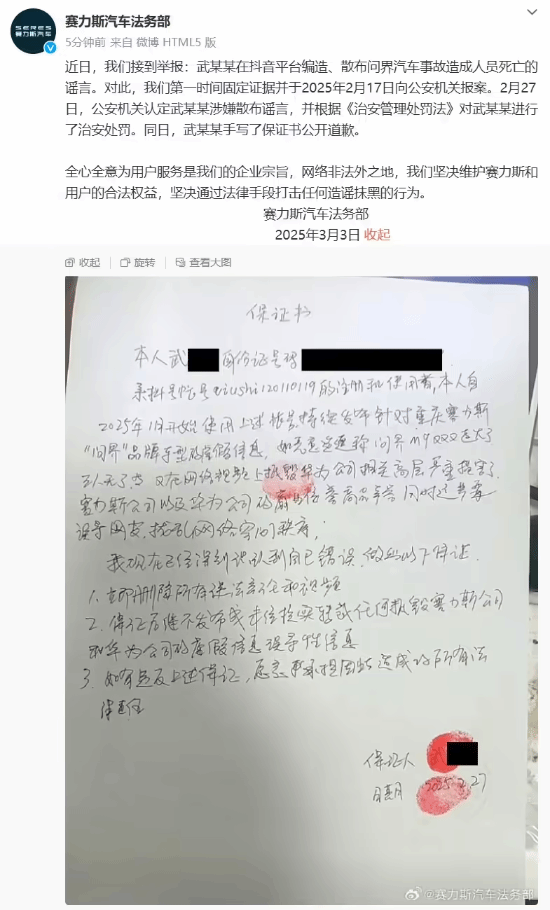 SERES
赛力斯汽车
赛力斯汽车法务部
5分钟前 来自 微博 HTML5 版
近日，我们接到举报：武某某在抖音平台编造、散布问界汽车事故造成人员死亡的
谣言。对此，我们第一时间固定证据并于2025年2月17日向公安机关报案。2月27
日，公安机关认定武某某涉嫌散布谣言，并根据《治安管理处罚法》对武某某进行
了治安处罚。同日，武某某手写了保证书公开道歉。
全心全意为用户服务是我们的企业宗旨，网络非法外之地，我们坚决维护赛力斯和
用户的合法权益，坚决通过法律手段打击任何造谣抹黑的行为。
赛力斯汽车法务部
2025年3月3日 收起
收起 旋转 查看大图
保证书
本人武 身份证号码
是抖音账号 120110119的注册和使用者，本人自
2025年1月开始使用上述账号持续发布针对重庆赛力斯
“问界”品牌车型的虚假信息，如恶意造谣称问界M9
又在网络视频上抵毁华为公司 高层 严重损害了
赛力斯公司以及华为公司的 商品声誉 同时
误导网友，扰乱网络空间秩序，
我现在已经深刻认识到自己错误，做出以下保证.
1. 立即删除所有违法言论和视频
2. 保证后继不发布或 任何抵毁赛力斯公司
和华为公司的虚假信息误导性信息
3. 如有违反上述保证，愿意 承担因此造成的所有法
律责任
保证人
日期 2025.2.27
@赛力斯汽车法务部